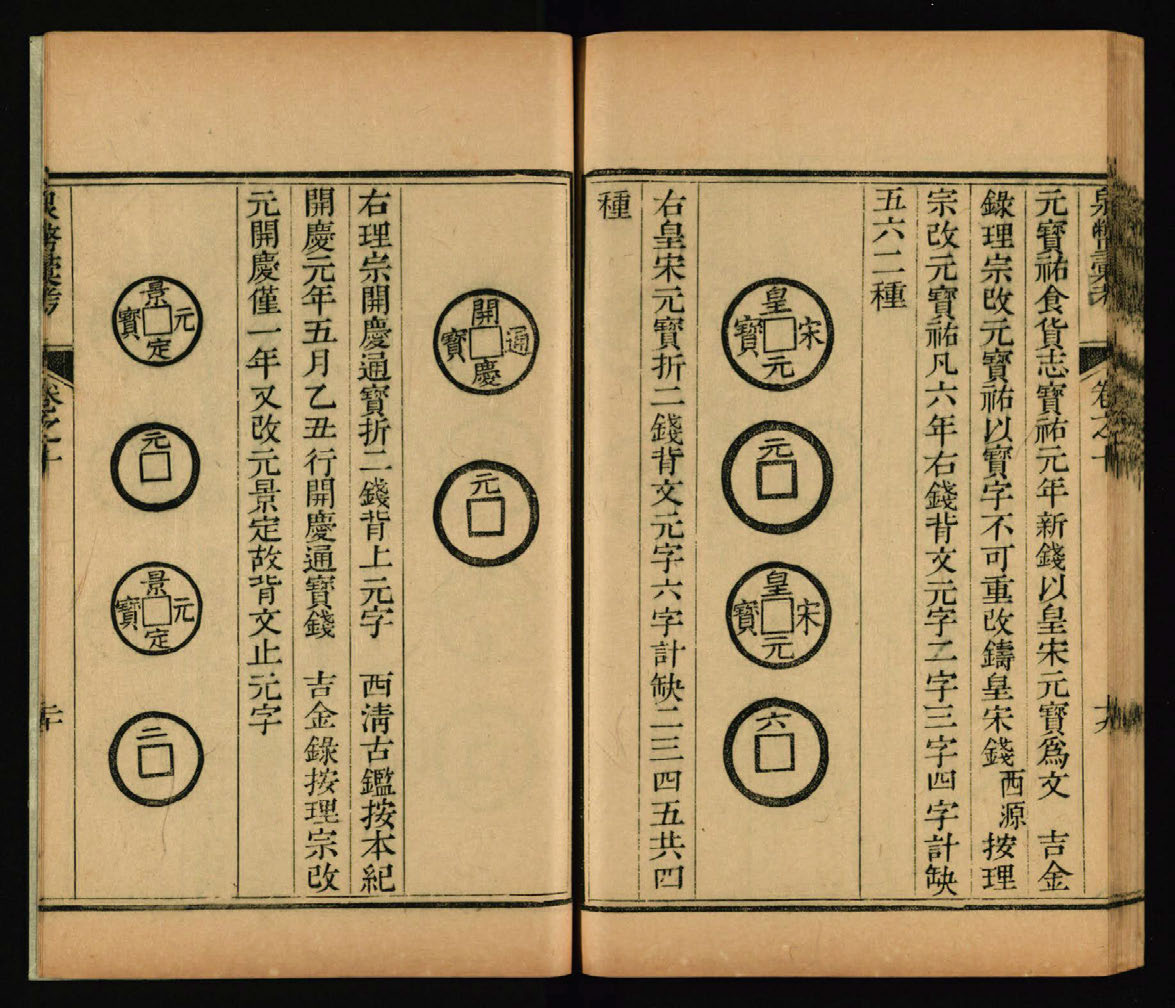 泉幣彙考
卷之十
十九
元寶祐食貨志寶祐元年新錢以皇宋元寶爲文　吉金
錄理宗改元寶祐以寶字不可重改鑄皇宋錢西源按理
宗改元寶祐凡六年右錢背文元字二字三字四字計缺
五六二種
皇宋元寶
元
皇宋元寶
六
右皇宋元寶折二錢背文元字六字計缺二三四五共四
種
開通慶寶
元
右理宗開慶通寶折二錢背上元字　西淸古鑑按本紀
開慶元年五月乙丑行開慶通寶錢　吉金錄按理宗改
元開慶僅一年又改元景定故背文止元字
景定元寶
元
景定元寶
二
泉幣彙考
卷之十
二十